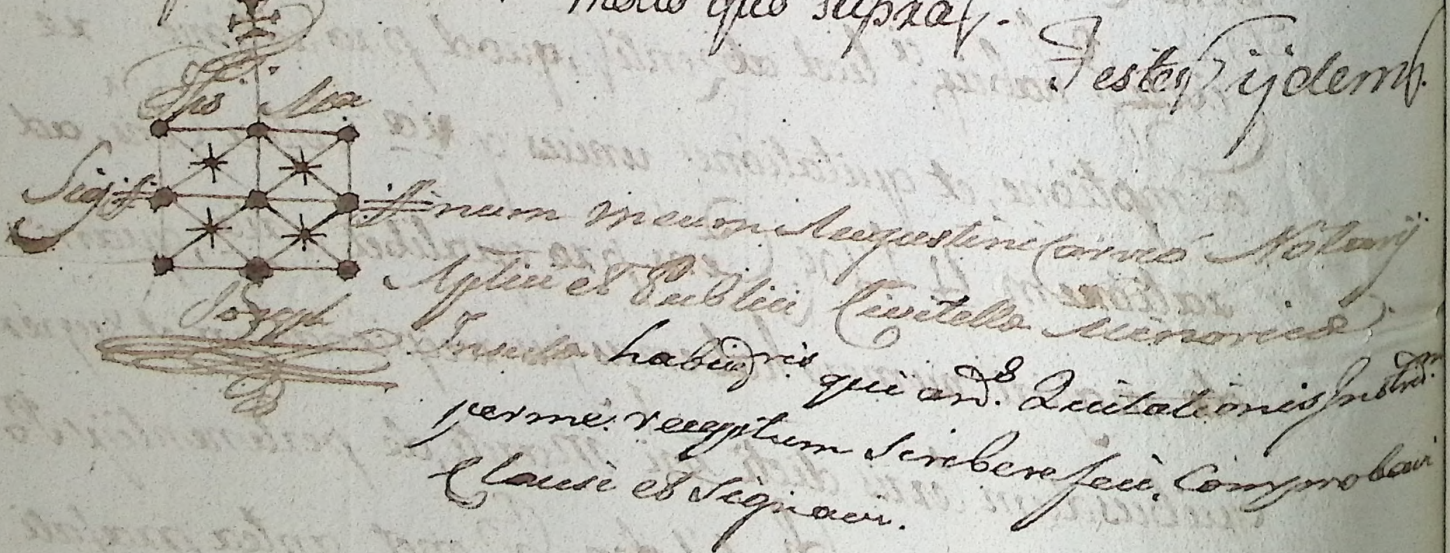 modo quo supra.
Testes ijdem.
Jhs Ma
Sig num meum Augustini Notarij
Aplici et Publici Civitella Minorica
Insula habitris qui and. Quitationis Instrum
per me receptum scribere feci, Comprobavi
Clausi et Signavi.
Joseph